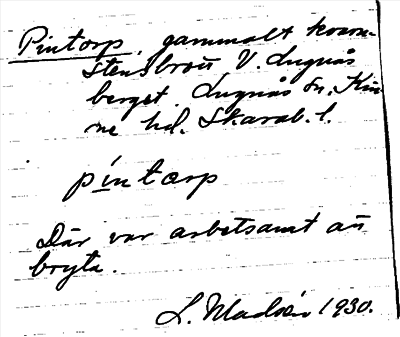 Pintorp, gammalt kvarn-
stensbrott V. Lugnås
berget. Lugnås sn, Kin
ne hd. Skarab. l.
píntorp
Där var arbetsamt att
bryta.
L. 1930.